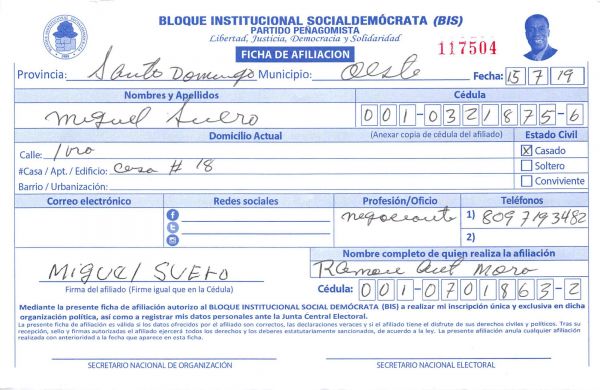 BLOQUE INSTITUCIONAL SOCIALDEMÓCRATA (BIS)
PARTIDO PEÑAGOMISTA
Libertad, Justicia, Democracia y Solidaridad
FICHA DE AFILIACION
117504
Provincia: Santo Domingo Municipio: Oeste Fecha: 15 7 19
Nombres y Apellidos Cédula
Miguel Suero 001-0321875-6
Domicilio Actual (Anexar copia de cédula del afiliado) Estado Civil
Calle: 1ra X Casado
#Casa / Apt. / Edificio: Casa # 18 Soltero
Barrio / Urbanización: Conviviente
Correo electrónico Redes sociales Profesión/Oficio Teléfonos
negociante 1) 8097193482
2)
Nombre completo de quien realiza la afiliación
MIGUEL SUERO Ramon
Firma del afiliado (Firme igual que en la Cédula) Cédula: 001-0701863-2
Mediante la presente ficha de afiliación autorizo al BLOQUE INSTITUCIONAL SOCIAL DEMÓCRATA (BIS) a realizar mi inscripción única y exclusiva en dicha
organización política, así como a registrar mis datos personales ante la Junta Central Electoral.
La presente ficha de afiliación es válida si los datos ofrecidos por el afiliado son correctos, las declaraciones veraces y si el afiliado tiene el disfrute de sus derechos civiles y políticos. Tras su
recepción, sello y firmas autorizadas el afiliado ejercerá todos los derechos y los deberes estatutariamente sancionados, de acuerdo a la ley. La presente afiliación anula cualquier afiliación
realizada con anterioridad a la fecha que aparece en esta ficha.
SECRETARIO NACIONAL DE ORGANIZACIÓN SECRETARIO NACIONAL ELECTORAL